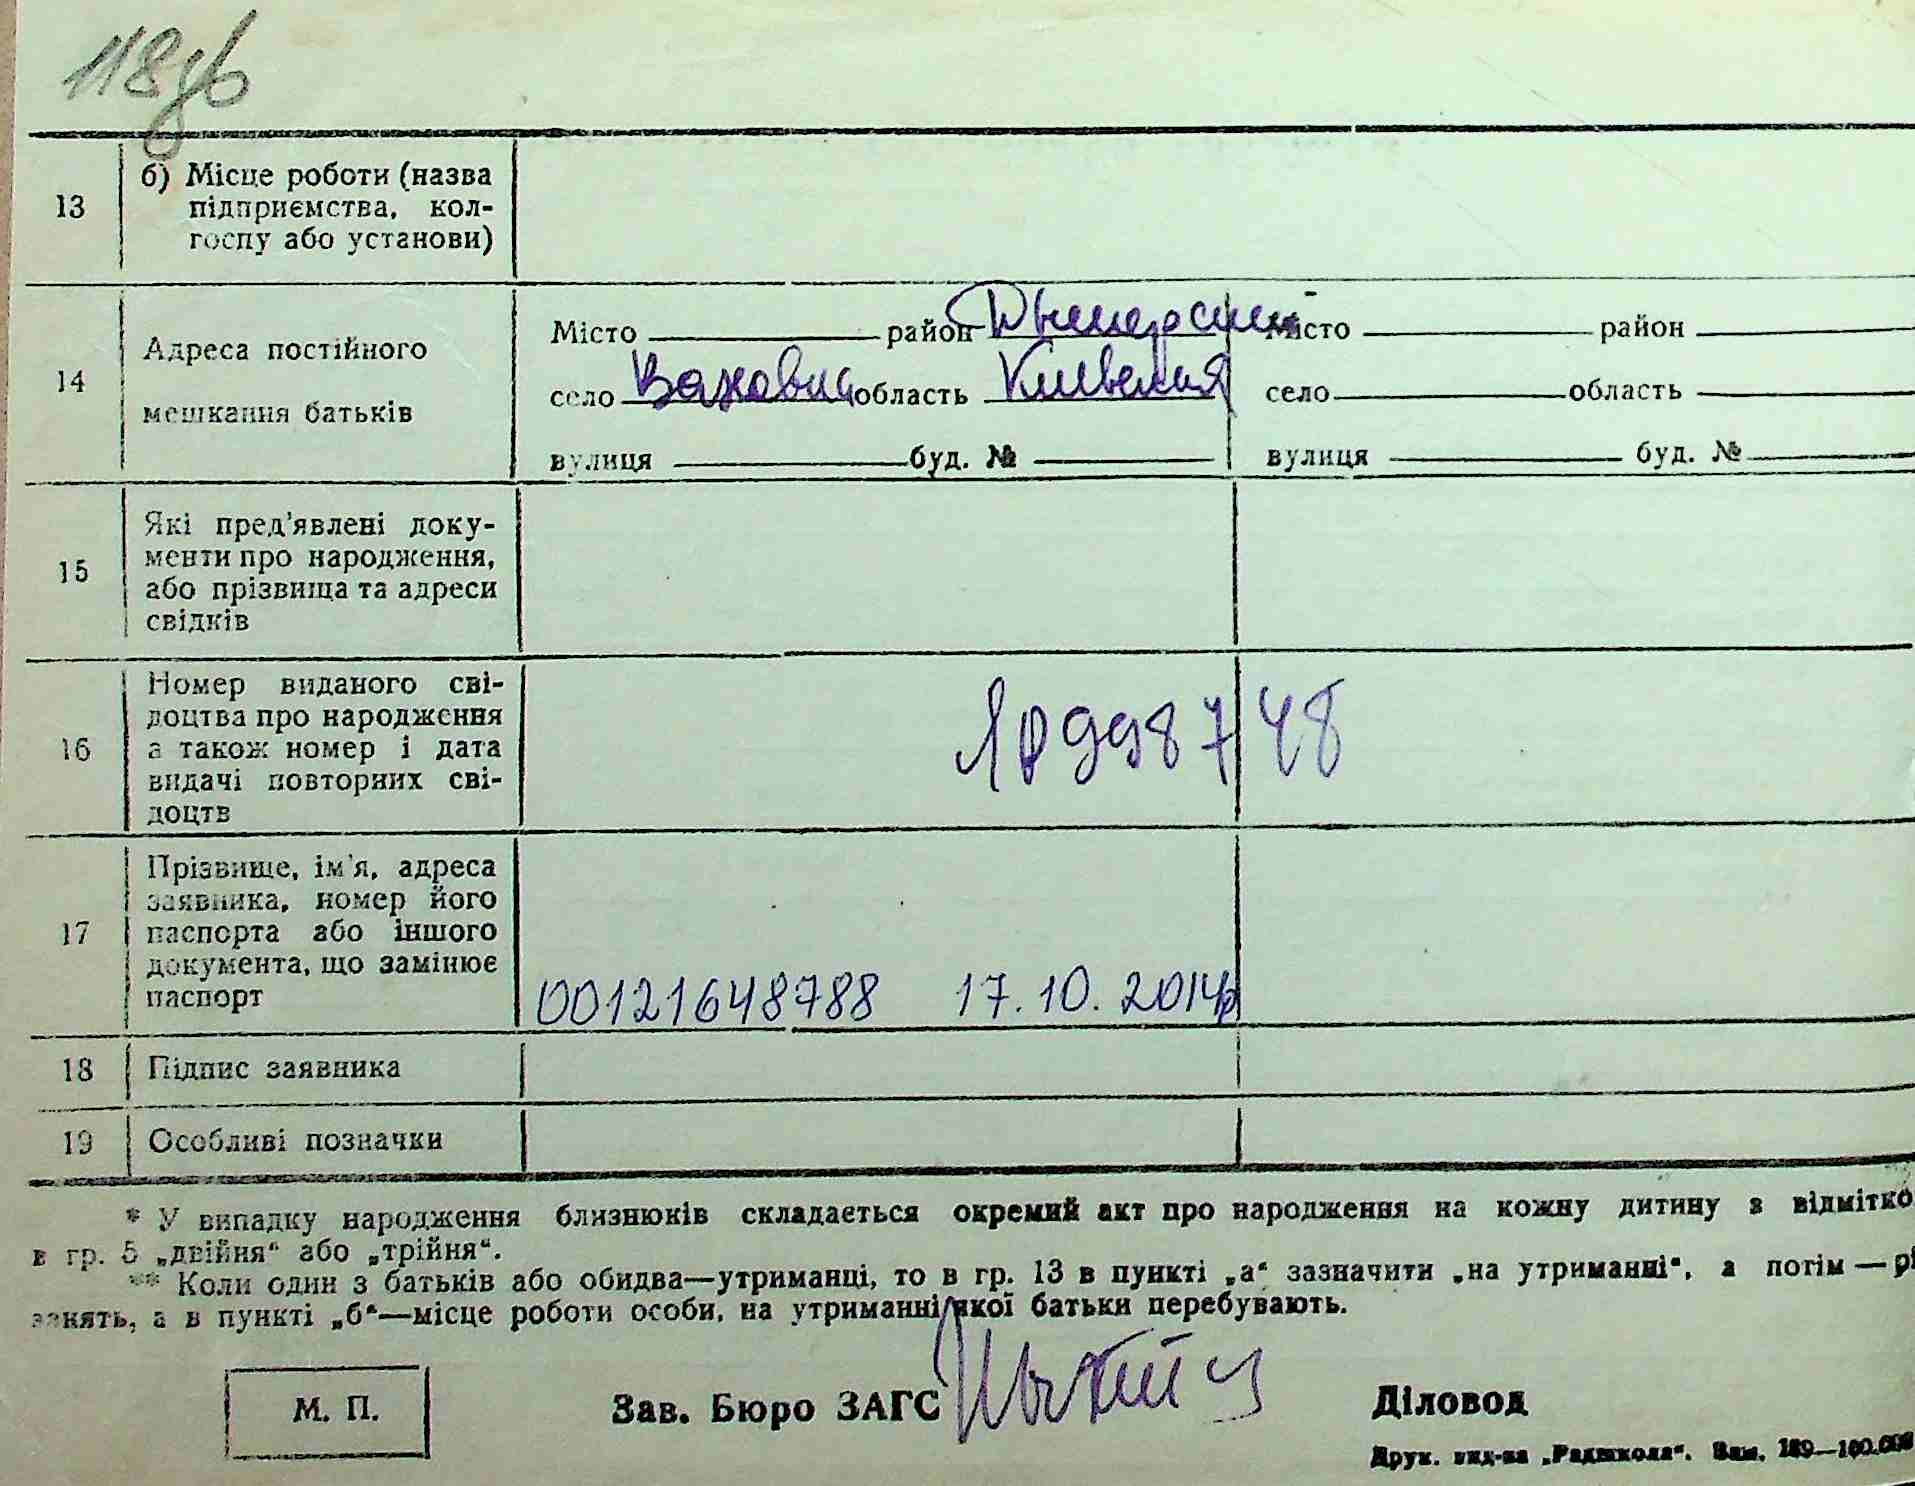 118зв
13
б) Місце роботи (назва
підприємства, кол-
госпу або установи)
14
Адреса постійного
мешкання батьків
Місто район Дымерский Місто район
село область Киевская село область
вулиця буд. № вулиця буд. №
15
Які пред'явлені доку-
менти про народження,
або прізвища та адреси
свідків
16
Номер виданого сві-
доцтва про народження
а також номер і дата
видачі повторних сві-
доцтв
17
Прізвище, ім'я, адреса
заявника, номер його
паспорта або іншого
документа, що замінює
паспорт
00121648788 17.10.2014р
18 Підпис заявника
19 Особливі позначки
* У випадку народження близнюків складається окремий акт про народження на кожну дитину з відмітко
в гр. 5 „двійня“ або „трійня“.
** Коли один з батьків або обидва—утриманці, то в гр. 13 в пункті „а“ зазначити „на утриманні“, а потім — рі
занять, а в пункті „б“—місце роботи особи, на утриманні якої батьки перебувають.
М. П.
Зав. Бюро ЗАГС
Діловод
Друк. вид-ва „Радшкола“. Зам. 189—100.000